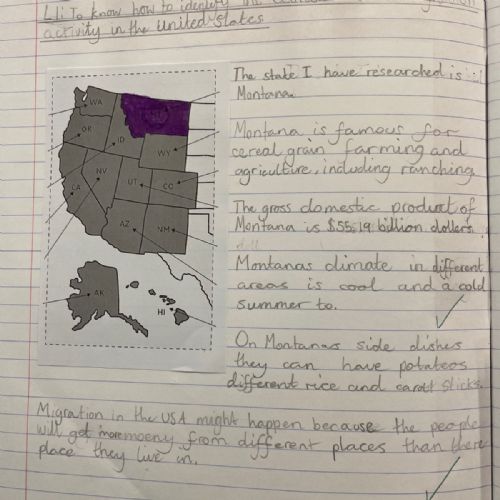 LI: To know how to identify the
activity in the United States
The state I have researched is
Montana.
Montana is famous for
cereal grain farming and
agriculture, including ranching.
The gross domestic product of
Montana is $55.19 billion dollars.
Montanas climate in different
areas is cool and a cold
summer to.
On Montanas side dishes
they can have potatoes
different rice and carott sticks.
Migration in the USA might happen because the people
will get more moeny from different places than there
place they live in.
WA
OR
ID
WY
NV
CA
UT
CO
AZ
NM
AK
HI